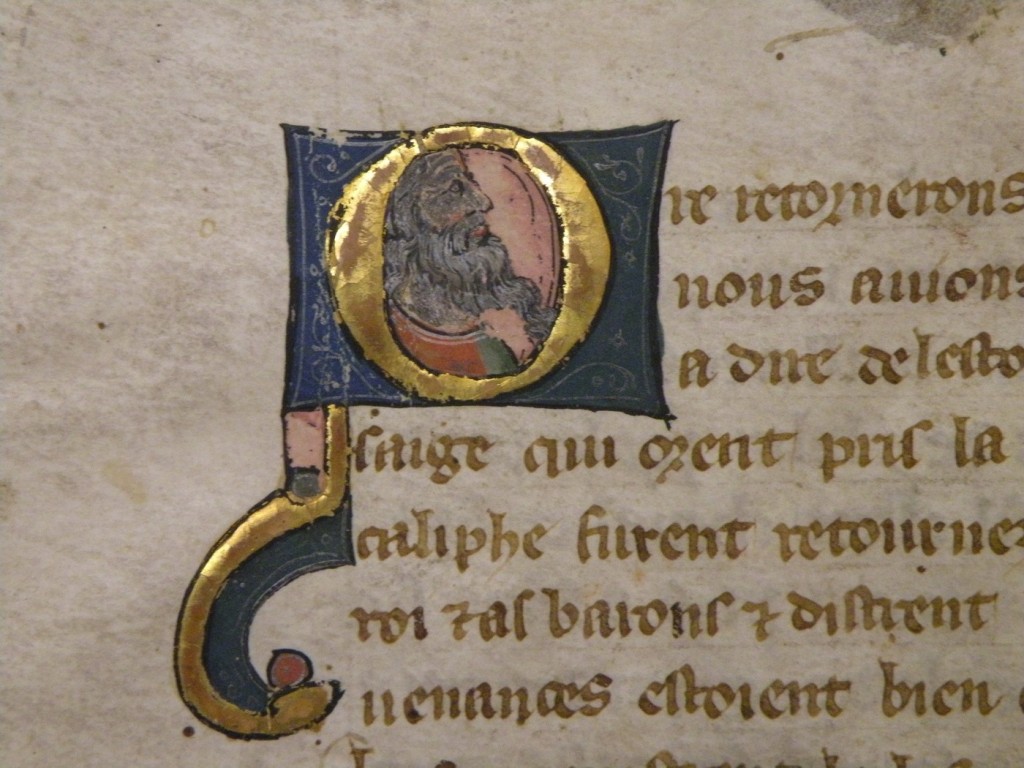 Ore retornerons
nous auions
a dire de lesto
saige qui orent pris la
caliphe furent retourne
roi ⁊ as barons ⁊ distrent
uenances estoient bien